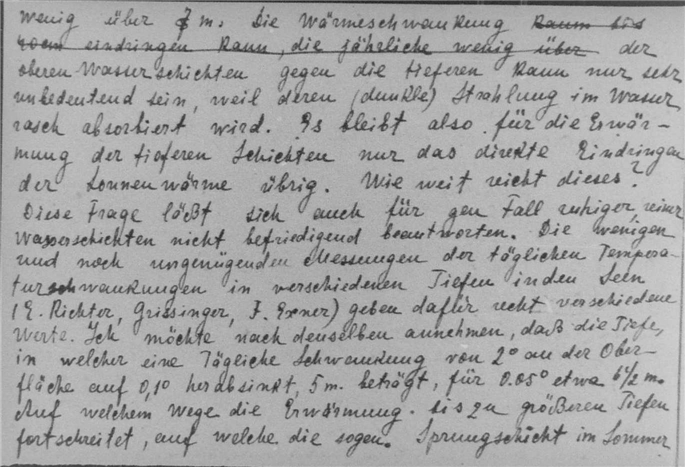 wenig über 7 m. Die Wärmeschwankung kaum bis
10cm eindringen kann, die jährliche wenig über der
oberen Wasserschichten gegen die tieferen kann nur sehr
unbedeutend sein, weil deren (dunkle) Strahlung im Wasser
rasch absorbiert wird. Es bleibt also für die Erwär-
mung der tieferen Schichten nur das direkte Eindringen
der Sonnenwärme übrig. Wie weit reicht dieses?
Diese Frage läßt sich auch für gen Fall ruhiger, reiner
Wasserschichten nicht befriedigend beantworten. Die wenigen
und noch ungenügenden Messungen der täglichen Tempera-
turschwankungen in verschiedenen Tiefen in den Seen
(E. Richter, Grissinger, F. Exner) geben dafür recht verschiedene
Werte. Ich möchte nach denselben annehmen, daß die Tiefe,
in welcher eine Tägliche Schwankung von 2° an der Ober-
fläche auf 0,1° herabsinkt, 5 m. beträgt, für 0.05° etwa 6½ m.
Auf welchem Wege die Erwärmung bis zu größeren Tiefen
fortschreitet, auf welche die sogen. Sprungschicht im Sommer